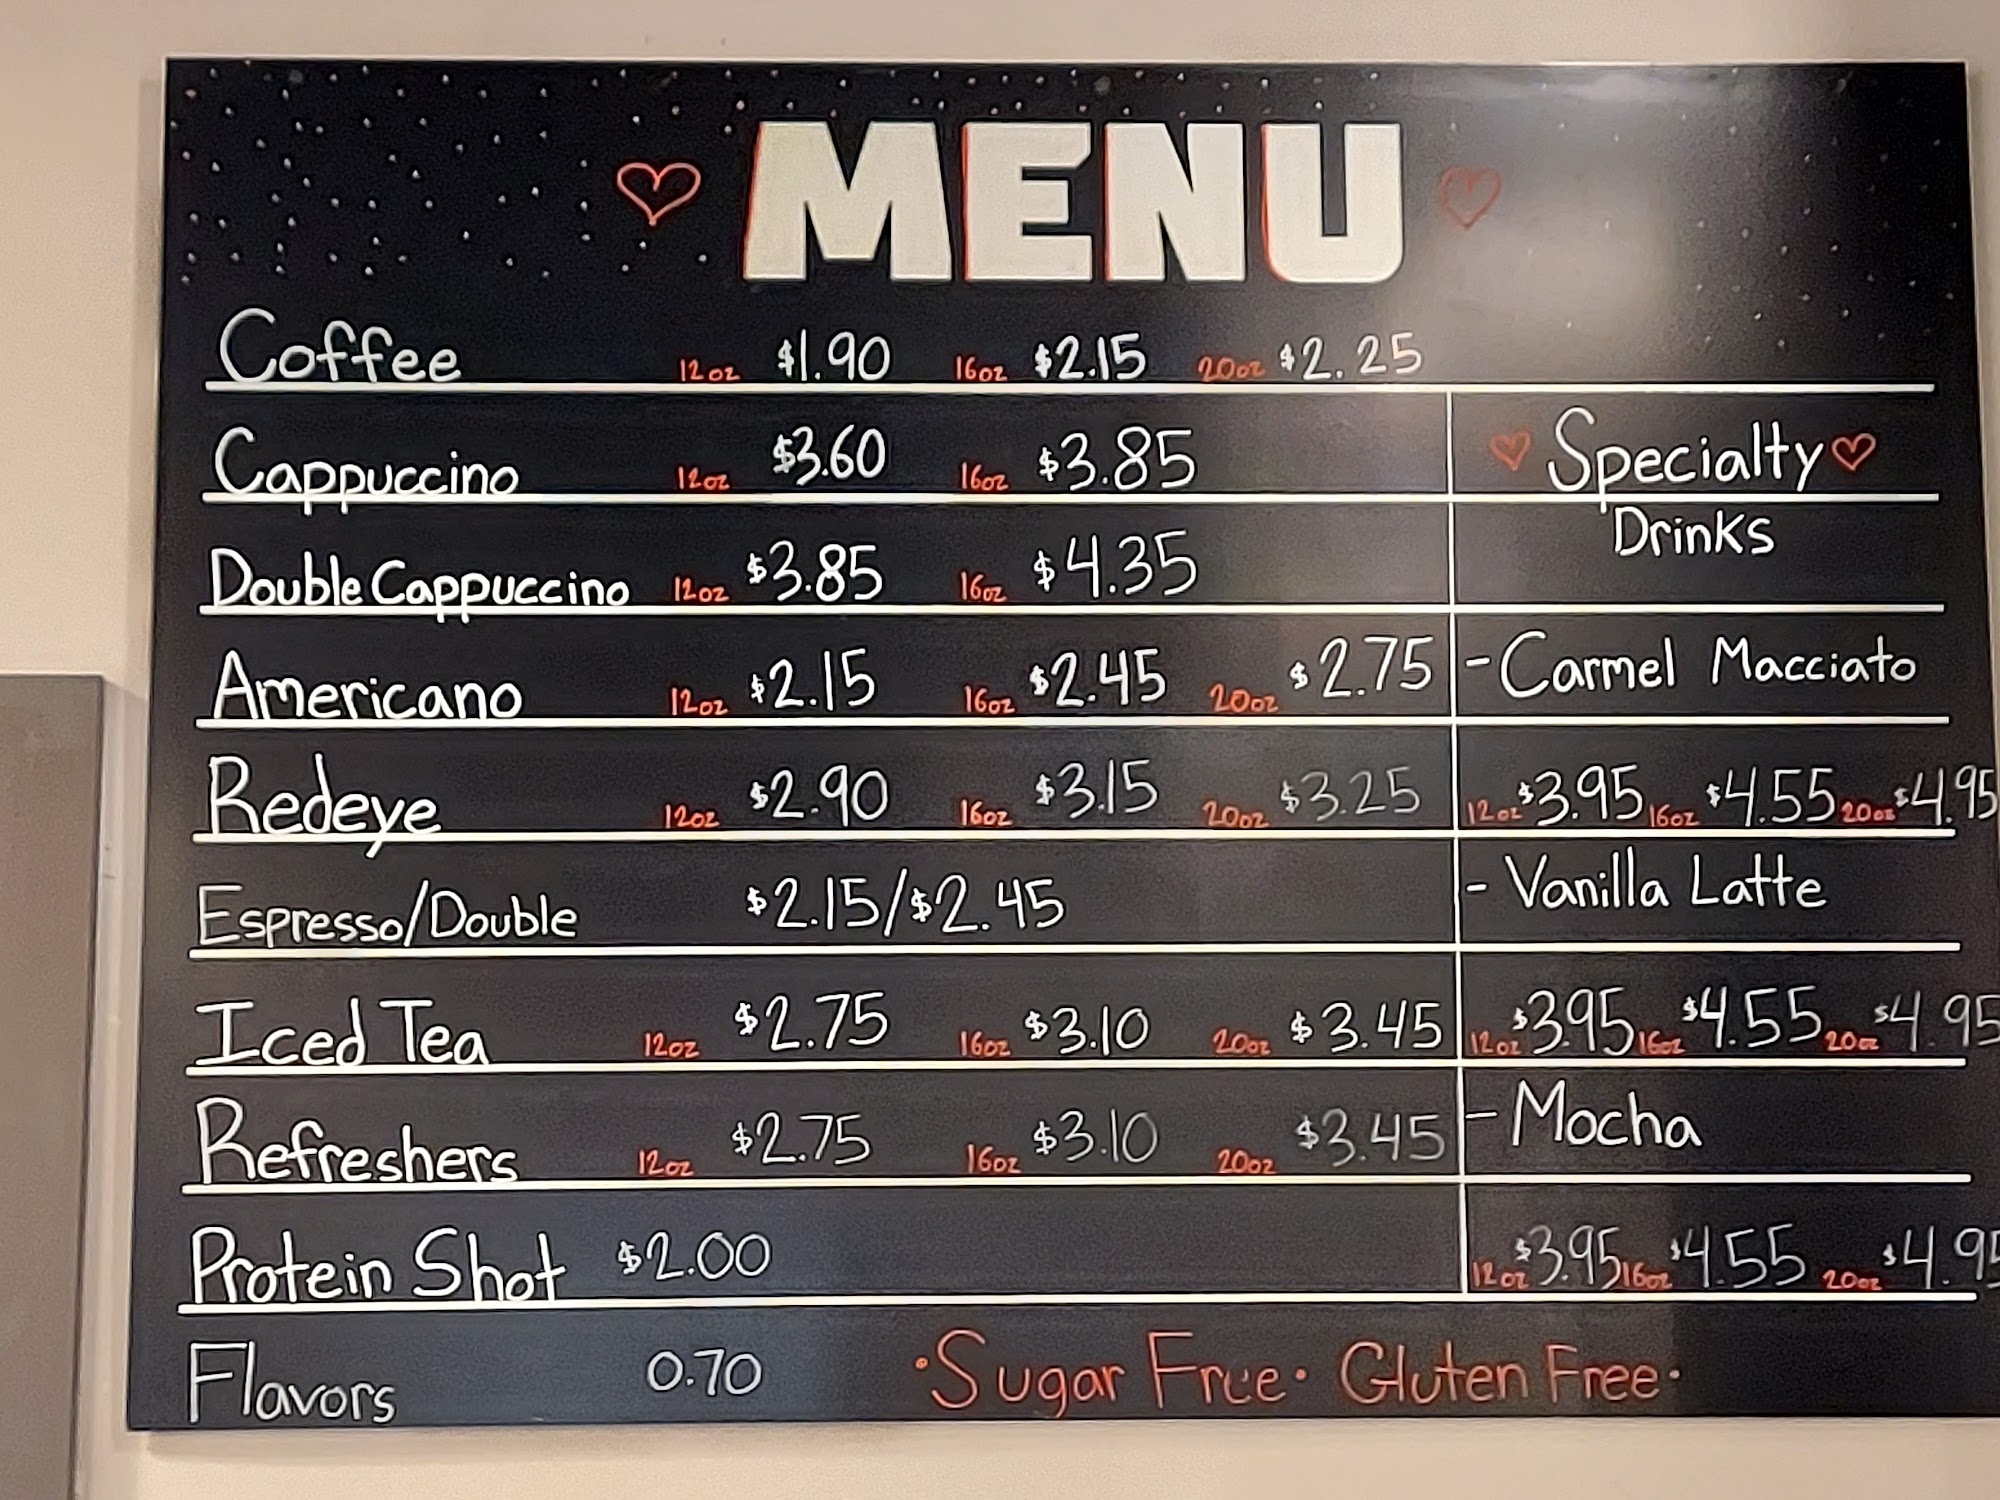 MENU
Coffee 12oz $1.90 16oz $2.15 20oz $2.25
Cappuccino 12oz $3.60 16oz $3.85
Double Cappuccino 12oz $3.85 16oz $4.35
Americano 12oz $2.15 16oz $2.45 20oz $2.75
Redeye 12oz $2.90 16oz $3.15 20oz $3.25
Espresso/Double $2.15/$2.45
Iced Tea 12oz $2.75 16oz $3.10 20oz $3.45
Refreshers 12oz $2.75 16oz $3.10 20oz $3.45
Protein Shot $2.00
Flavors 0.70
Specialty
Drinks
- Carmel Macciato
12oz $3.95 16oz $4.55 20oz $4.95
- Vanilla Latte
12oz $3.95 16oz $4.55 20oz $4.95
- Mocha
12oz $3.95 16oz $4.55 20oz $4.95
• Sugar Free • Gluten Free •